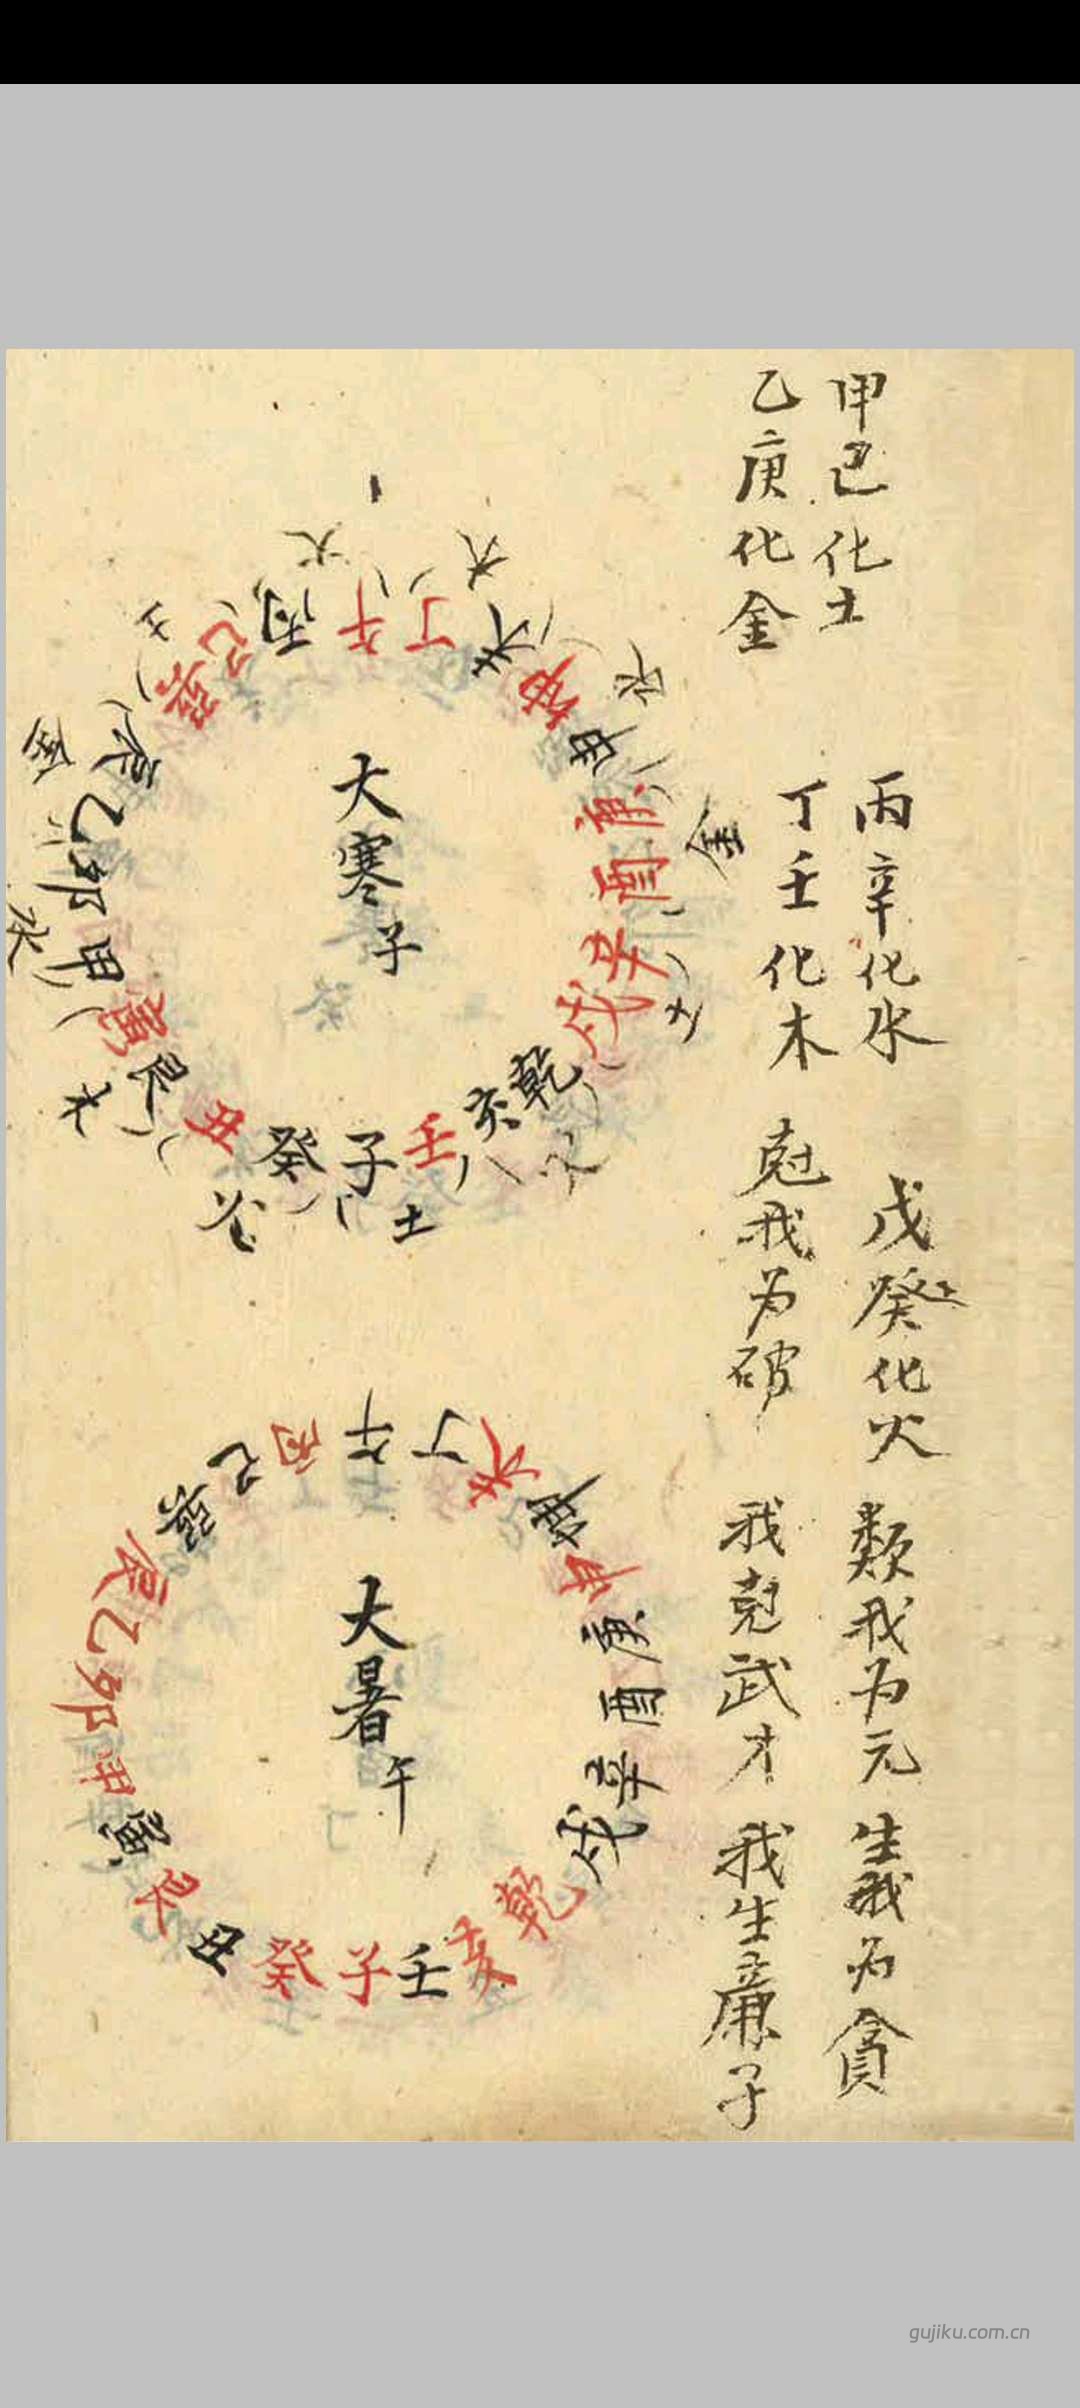 甲己化土 丙辛化水 戊癸化火 類我为元 生我为貪
乙庚化金 丁壬化木 尅我为破 我尅武才 我生廉子
大寒子
丙午丁未坤申庚酉辛戌乾亥壬子癸丑艮寅甲卯乙辰巽巳
火 水 金 土 土 火 木 水 金 土
大暑午
丙午丁未坤申庚酉辛戌乾亥壬子癸丑艮寅甲卯乙辰巽巳
gujiku.com.cn